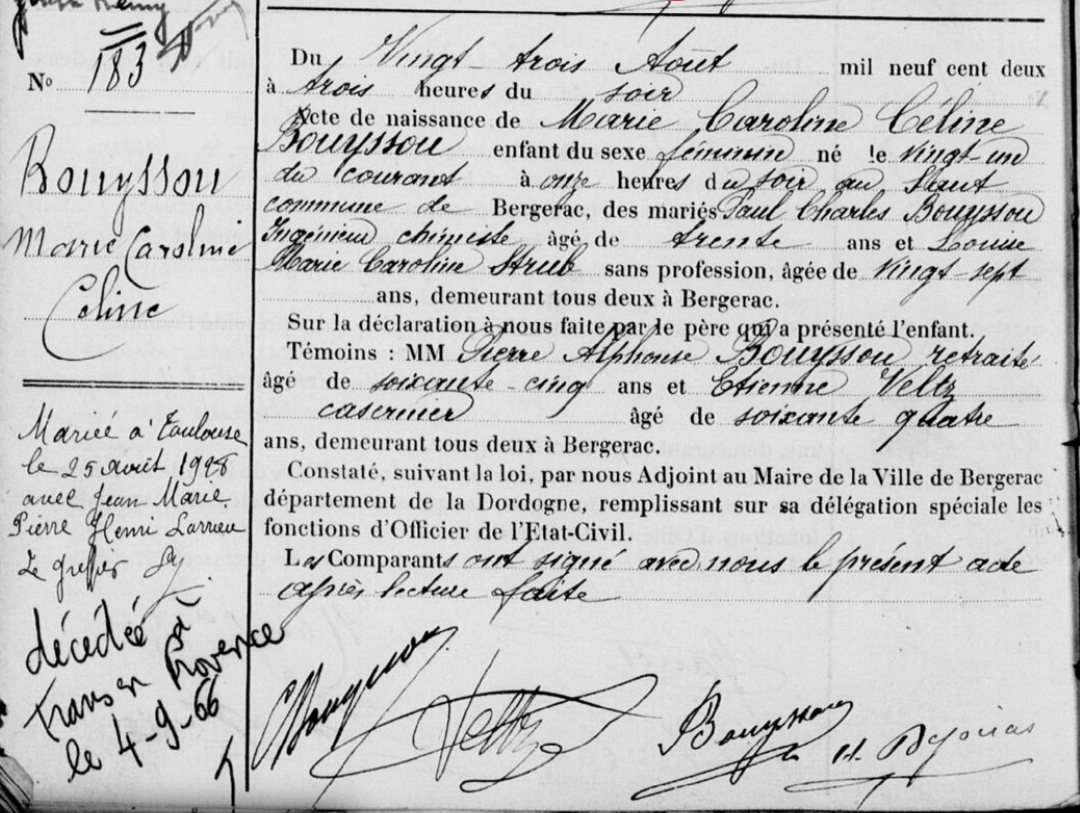 N° 183
Bouyssou
Marie Caroline
Celine
Mariée à Toulouse
le 25 avril 1928
avec Jean Marie
Pierre Henri Larrieu
Le greffier
décédée à
Trans en Provence
le 4-9-66
Du Vingt-trois Août mil neuf cent deux
à trois heures du soir
Acte de naissance de Marie Caroline Céline
Bouyssou enfant du sexe féminin né le vingt-un
du courant à onze heures du soir au
commune de Bergerac, des mariés Paul Charles Bouyssou
Ingénieur chimiste âgé de trente ans et Louise
Marie Caroline Strub sans profession, âgée de vingt-sept
ans, demeurant tous deux à Bergerac.
Sur la déclaration à nous faite par le père qui a présenté l'enfant.
Témoins : MM Pierre Alphonse Bouyssou retraité
âgé de soixante-cinq ans et Etienne Veltz
casernier âgé de soixante quatre
ans, demeurant tous deux à Bergerac.
Constaté, suivant la loi, par nous Adjoint au Maire de la Ville de Bergerac
département de la Dordogne, remplissant sur sa délégation spéciale les
fonctions d'Officier de l'Etat-Civil.
Les Comparants ont signé avec nous le présent acte
après lecture faite
Bouyssou Veltz Bouyssou